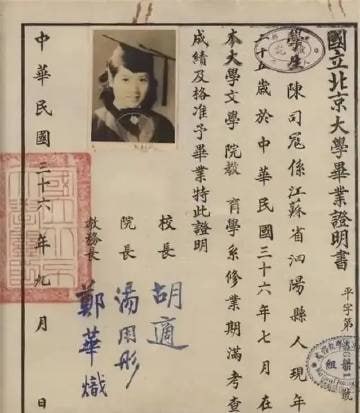 國立北京大學畢業證明書
平字第
號
學生陳司寇係江蘇省泗陽縣人現年
二十五歲於中華民國三十六年七月在
本大學文學院教育學系修業期滿考查
成績及格准予畢業特此證明
校長 胡適
院長 湯用彤
教務長 鄭華熾
中華民國三十六年九月 日